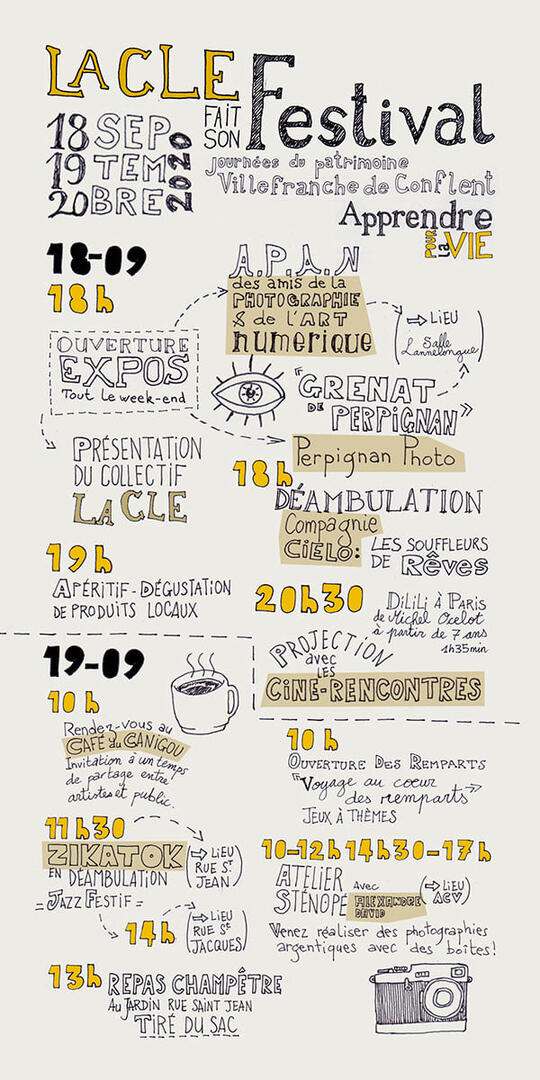 LA CLE
FAIT
SON
Festival
18 SEP
19 TEM
20 BRE
2020
journées du patrimoine
Villefranche de Conflent
Apprendre
POUR
la
VIE
18-09
18h
OUVERTURE
EXPOS
Tout Le week-end
A.P.A.N
des amis de la
PHOTOGRAPHIE
& de L'ART
numerique
LiEU
Salle
Lannelongue
"GRENAT
DE PERPIGNAN"
Perpignan Photo
PRÉSENTATION
DU COLLECTIF
LA CLE
18h
DÉAMBULATION
Compagnie
CIELO:
LES SOUFFLEURS
DE Rêves
19h
APÉRITIF-DÉGUSTATION
DE PRODUITS LOCAUX
20h30
DiLiLi À PARiS
de Michel Ocelot
à partir de 7 ans
1h35min
PROJECTION
avec
LES
CiNÉ-RENCONTRES
19-09
10h
Rendez-vous au
CAFÉ du CANIGOU
Invitation à un temps
de partage entre
artistes et public.
10h
OUVERTURE DES REMPARTS
"Voyage au coeur
des remparts"
JEUX À THÈMES
11h30
ZIKATOK
EN DÉAMBULATION
=JAZZ FESTIF=
LIEU
RUE ST
JEAN
14h
LIEU
RUE ST
JACQUES
10-12h 14h30-17h
ATELIER
STÉNOPÉ
Avec
ALEXANDRE
DAVID
LIEU
ACV
Venez réaliser des photographies
argentiques avec des boîtes!
13h
REPAS CHAMPÊTRE
AU JARDIN RUE SAINT JEAN
TIRÉ DU SAC